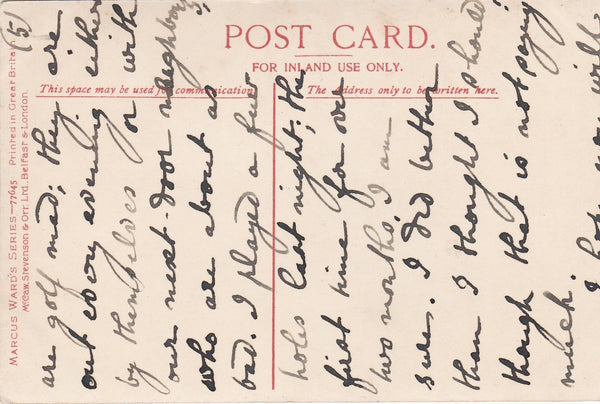 (5)
POST CARD.
FOR INLAND USE ONLY.
This space may be used for communication.
The Address only to be written here.
MARCUS WARD'S SERIES—77645 Printed in Great Britain
McCaw, Stevenson & Orr, Ltd., Belfast & London.
are golf mad; they are
out every evening either
by themselves or with
our next-door neighbours,
who are about as
bad. I played a few
holes last night; the
first time for over
two months, I am
sure. I did better
than I thought I should
though that is not saying
much.
I hope you will